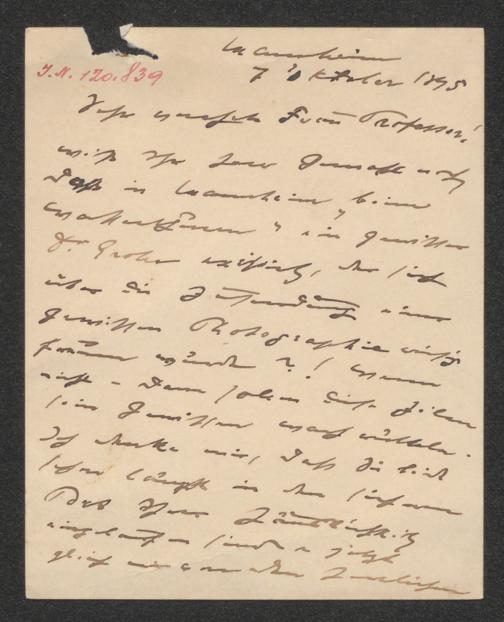 J.N. 120.839
Mannheim
7 Oktober 1895
Sehr verehrte Frau Professor!
weiß Ihr Herr Gemahl noch
daß in Mannheim beim
ein gewisser
Dr Grohe existirt, der sich
über die Zusendung einer
gewissen Photographie riesig
freuen würde?! Wenn
nicht – dann sollen diese Zeilen
sein Gewissen wach rütteln.
Ich denke mir, daß Sie Beide
schon längst in den sicheren
Port Ihrer Häuslichkeit
eingelaufen sind u jetzt
gleich